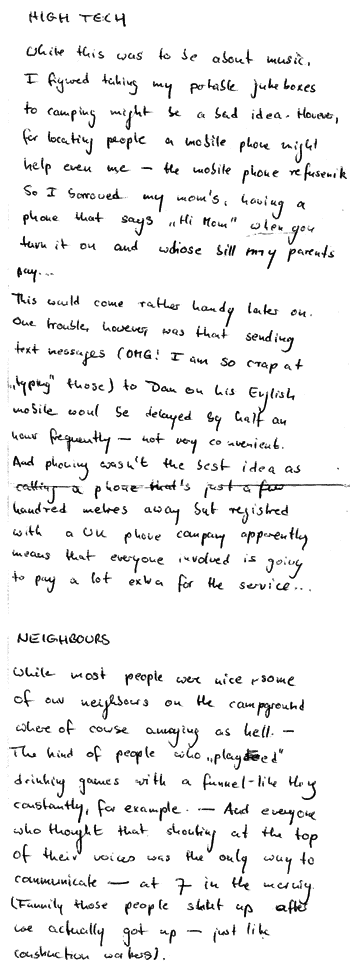 HIGH TECH
While this was to be about music,
I figured taking my potable juke boxes
to camping might be a bad idea. However,
for locating people a mobile phone might
help even me — the mobile phone refusenik
So I borrowed my mom's, having a
phone that says „Hi Mom" when you
turn it on and whose bill my parents
pay...
This would come rather handy later on.
One trouble, however was that sending
text messages (OMG! I am so crap at
„typing" those) to Dan on his English
mobile woul be delayed by half an
hour frequently — not very convenient.
And phoning wasn't the best idea as
calling a phone that's just a few
hundred metres away but registred
with a UK phone company apparently
means that everyone involved is going
to pay a lot extra for the service...
NEIGHBOURS
While most people were nice some
of our neighbours on the campground
where of course annoying as hell. —
The kind of people who „played"
drinking games with a funnel-like thing
constantly, for example. — And everyone
who thought that shouting at the top
of their voices was the only way to
communicate — at 7 in the morning.
(Funnily those people shut up after
we actually got up — just like
construction workers).